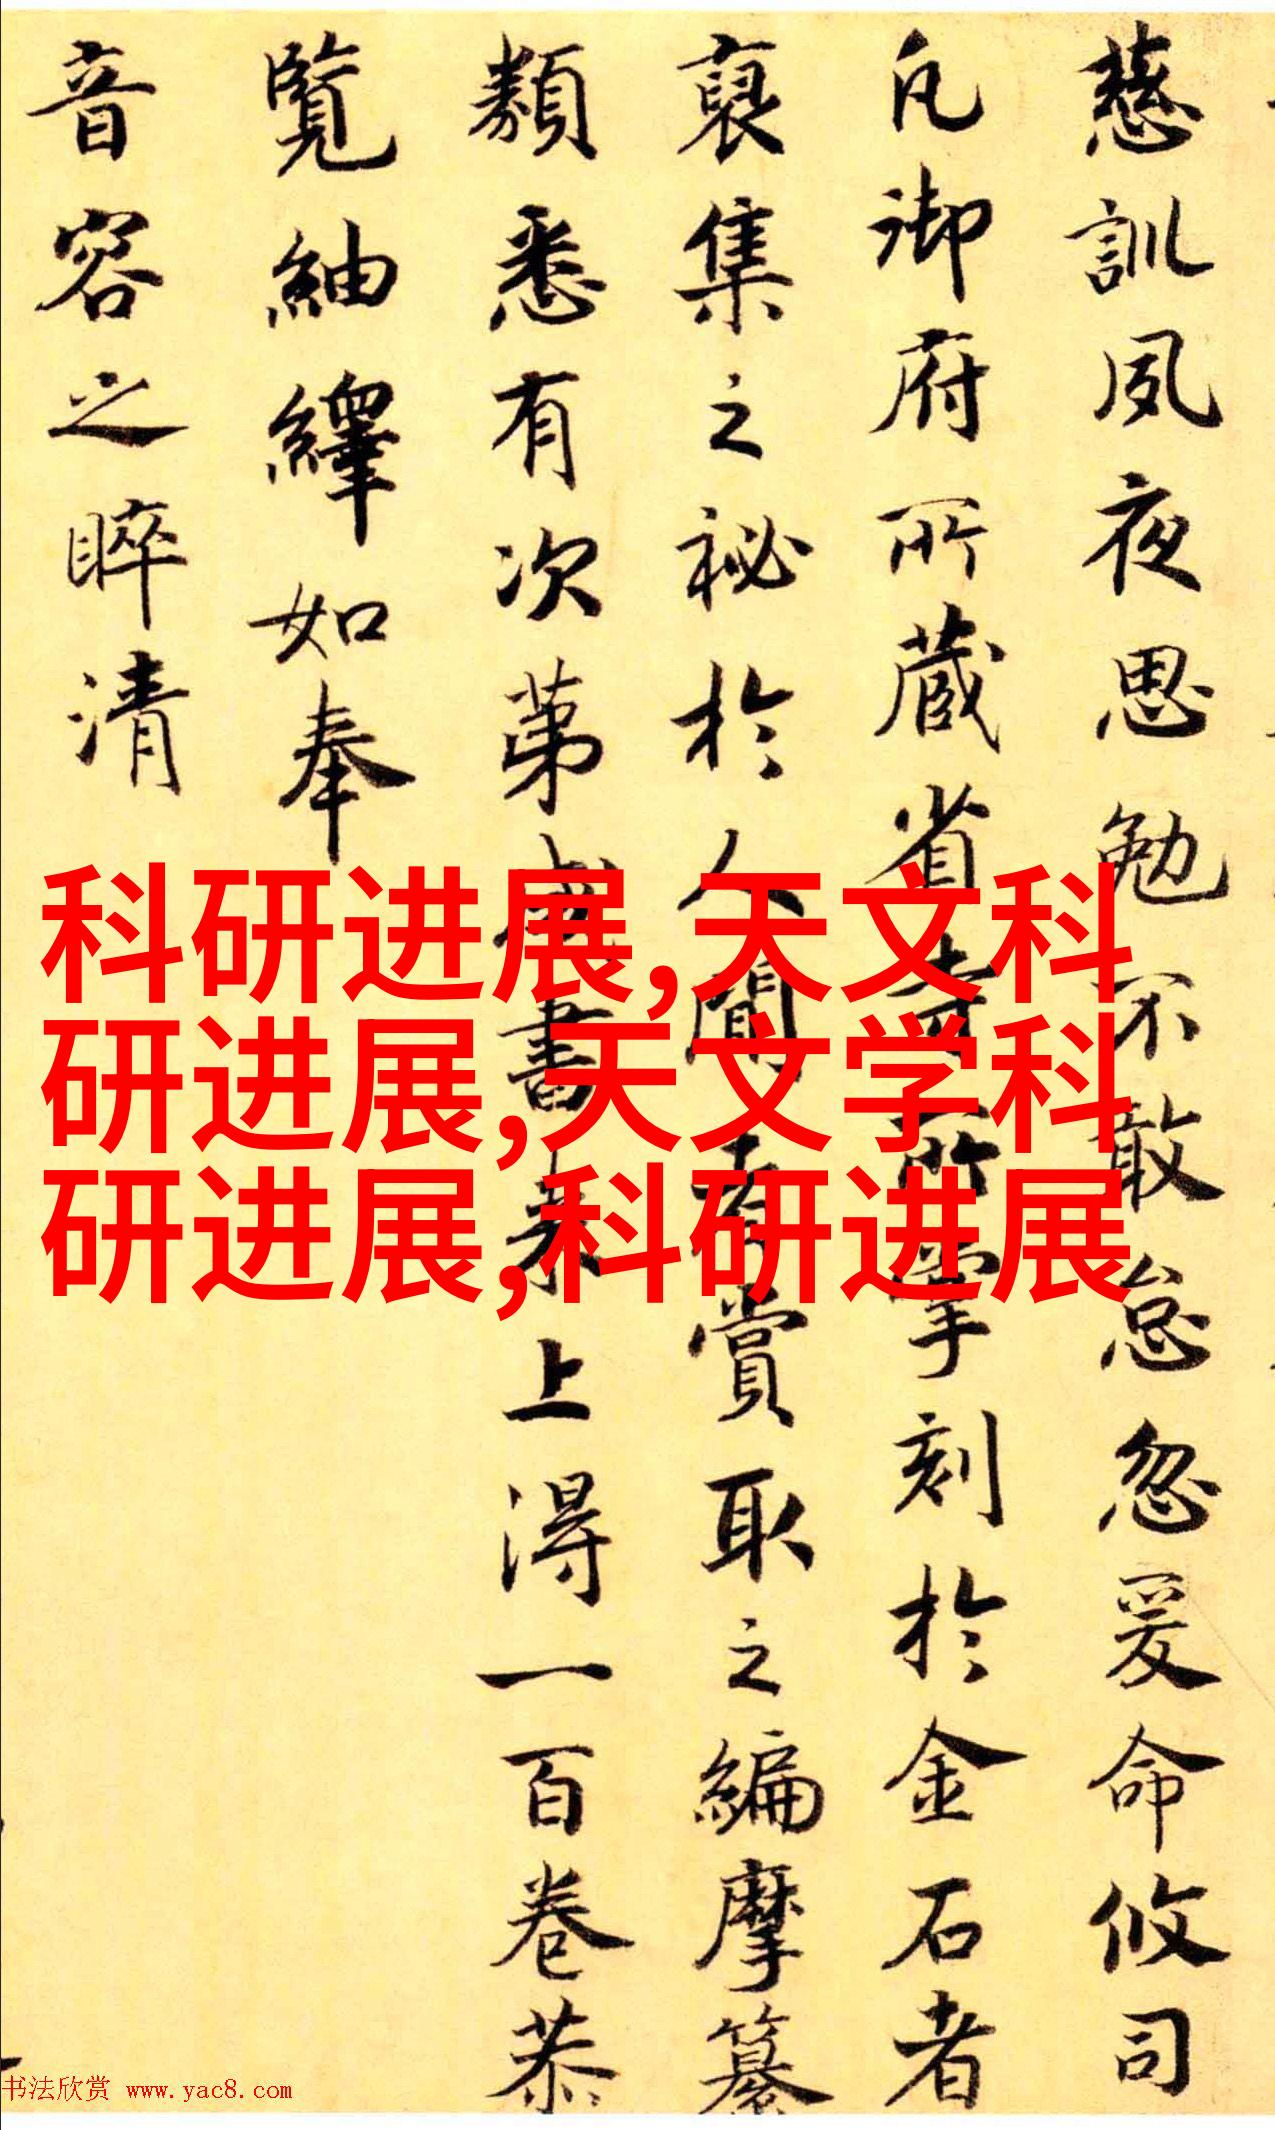 慈訓夙夜思勉不敢怠忽爰命攸司
凡御府所藏省寺所掌刻於金石者
裒集之祕於人間者賞取之編摩纂
類悉有次第書來上得一百卷恭
覽紬繹如奉
音容之睟清
科研进展,天文科
研进展,天文学科
研进展,科研进展
书法欣赏 www.yac8.com